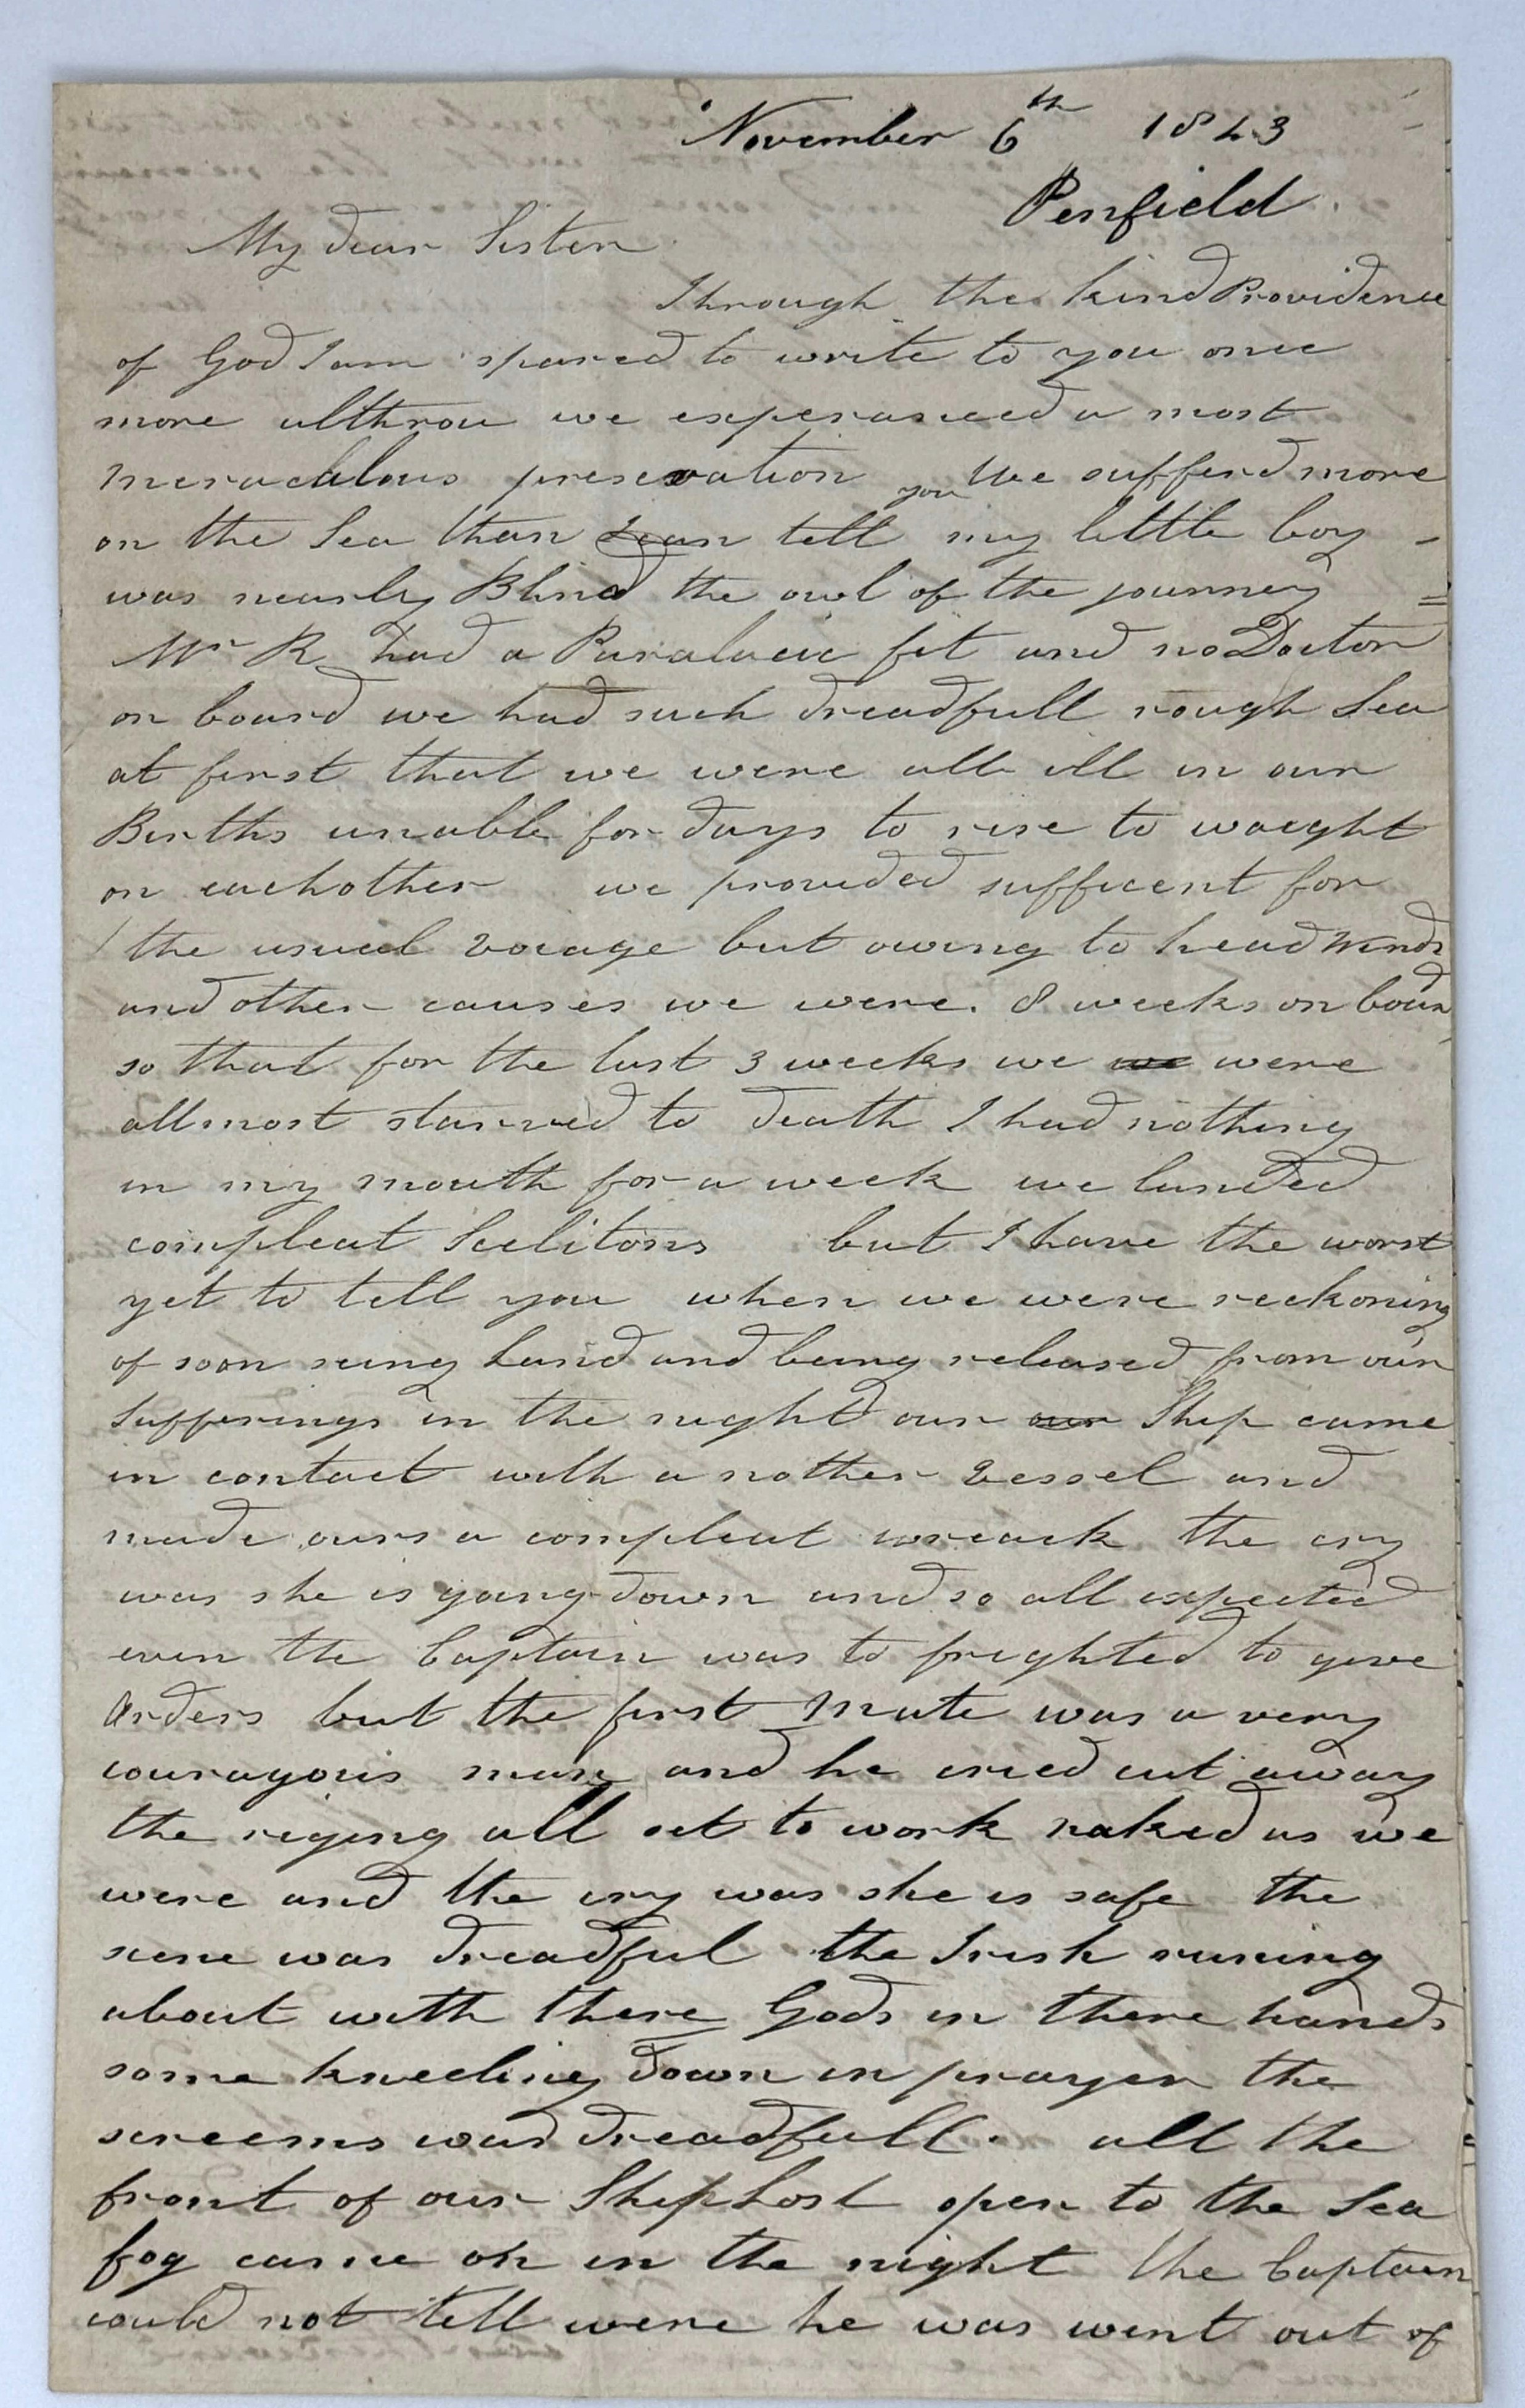 November 6th 1843
Penfield
My dear Sister
Through the kind Providence
of God I am spared to write to you once
more althrou we experanced a most
meraculous preservation We sufferd more
on the Sea than I can tell you my little boy
was nearly Blind the owl of the journey
Mr R had a Paralacic fit and no Doctor
on board we had such dreadfull rough Sea
at first that we were all ill in our
Births unable for days to rise to waeght
on eachother we provided sufficent for
the usual voiage but owing to head winds
and other causes we were 8 weeks on board
so that for the last 3 weeks we we were
allmost starved to death I had nothing
in my mouth for a week we landed
compleat Scelitons but I have the worst
yet to tell you when we were reckoning
of soon seing Land and being released from our
sufferings in the night our our Ship came
in contact with a nother Vessel and
made ours a compleat wreack the cry
was she is going down and so all expected
even the Captain was to frighted to give
Orders but the first Mate was a very
couragous man and he cried cut away
the riging all set to work naked as we
were and the cry was she is safe the
scene was dreadful the Irish runing
about with there Gods in there hands
some kneeling down in prayer the
screems was dreadfull. all the
front of our Ship Lost open to the Sea
fog came on in the night the Captain
could not tell were he was went out of